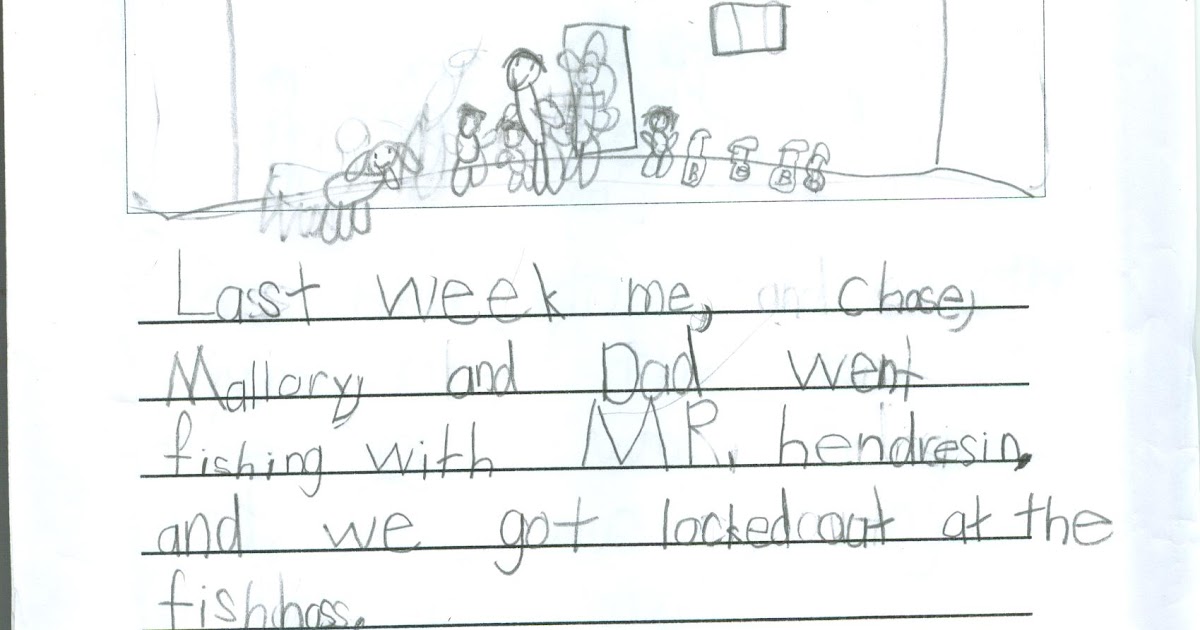 B B B B
Last week me, chase,
Mallory, and Dad went
fishing with MR. hendresin,
and we got locked out at the
fishhoss.